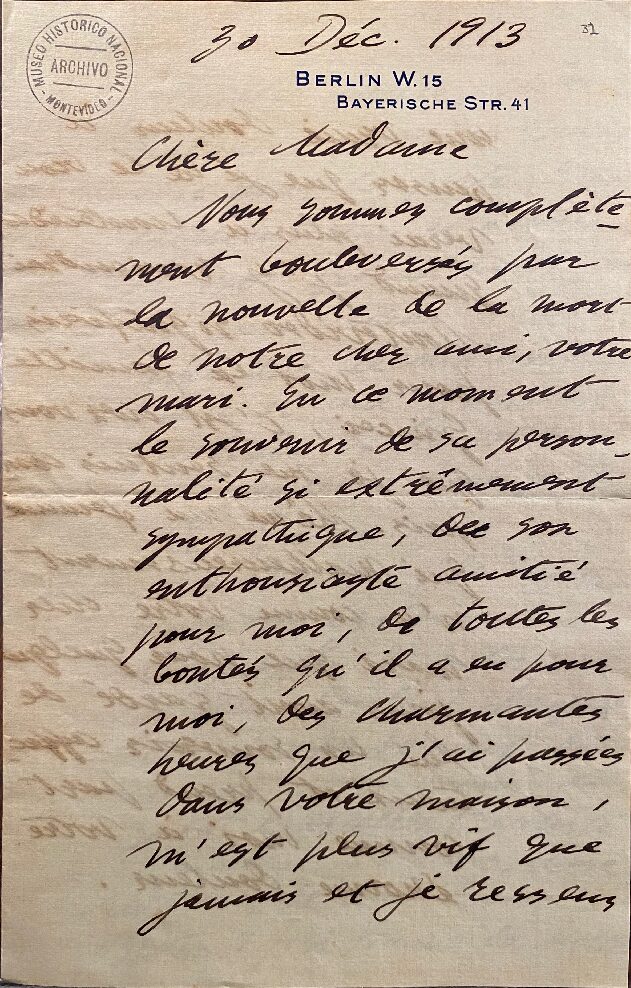 MUSEO HISTORICO NACIONAL
ARCHIVO
MONTEVIDEO
32
30 Déc. 1913
BERLIN W. 15
BAYERISCHE STR. 41
Chère Madame
Nous sommes complète-
ment bouleversés par
la nouvelle de la mort
de notre cher ami, votre
mari. En ce moment
le souvenir de sa person-
nalité si extrêmement
sympathique, de son
enthousiaste amitié
pour moi, de toutes les
bontés qu'il a eu pour
moi, des charmantes
heures que j'ai passées
dans votre maison,
m'est plus vif que
jamais et je ressens